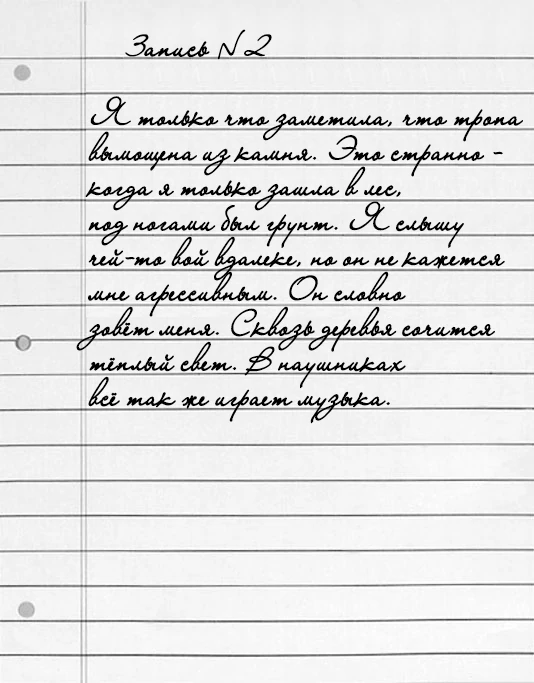 Запись N 2
Я только что заметила, что тропа
вымощена из камня. Это странно -
когда я только зашла в лес,
под ногами был грунт. Я слышу
чей-то вой вдалеке, но он не кажется
мне агрессивным. Он словно
зовёт меня. Сквозь деревья сочится
тёплый свет. В наушниках
всё так же играет музыка.